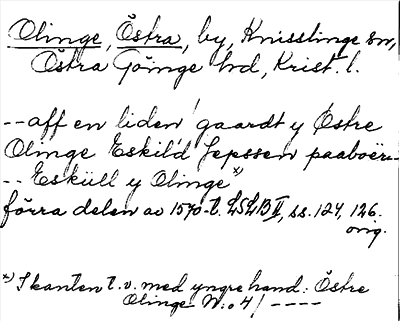 Olinge, Östra, by, Knisslinge sn,
Östra Göinge hd, Krist. l.
--aff en liden gaardt y Østre
Olinge Eskild Jepssen paaboër--
-- Esküll y Olinge*)
förra delen av 1570-t. LSLB II, ss. 124, 126.
orig.
*) I kanten t.v. med yngre hand: Östre
Olinge N:o 4/ ----